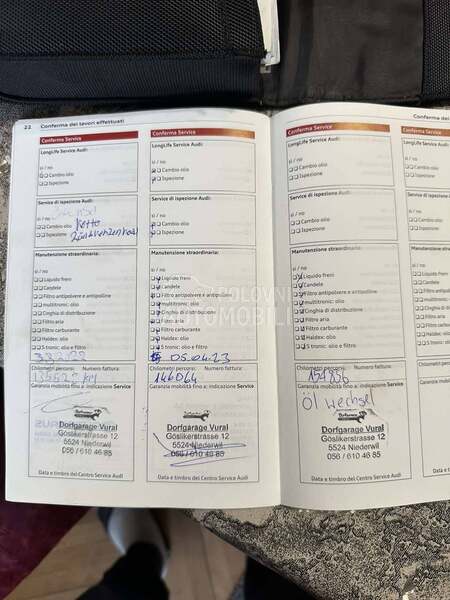 22 Conferma dei lavori effettuati
Conferma Service
LongLife Service Audi:
sì / no
Cambio olio
Ispezione
Service di ispezione Audi:
Cambio olio Kette
Ispezione
Manutenzione straordinaria:
sì / no
Liquido freni
Candele
Filtro antipolvere e antipolline
multitronic: olio
Cinghia di distribuzione
Filtro aria
Filtro carburante
Haldex: olio
S tronic: olio e filtro
Chilometri percorsi: Numero fattura:
Garanzia mobilità fino a: indicazione Service
Dorfgarage Vural
Göslikerstrasse 12
5524 Niederwil
056 / 610 46 85
Data e timbro del Centro Service Audi
Conferma Service
LongLife Service Audi:
sì / no
Cambio olio
Ispezione
Service di ispezione Audi:
sì / no
Cambio olio
Ispezione
Manutenzione straordinaria:
sì / no
Liquido freni
Candele
Filtro antipolvere e antipolline
multitronic: olio
Cinghia di distribuzione
Filtro aria
Filtro carburante
Haldex: olio
S tronic: olio e filtro
05.04.23
Chilometri percorsi: Numero fattura:
146064
Garanzia mobilità fino a: indicazione Service
Dorfgarage Vural
Göslikerstrasse 12
5524 Niederwil
056 / 610 46 85
Data e timbro del Centro Service Audi
Conferma dei
Conferma Service
LongLife Service Audi:
sì / no
Cambio olio
Ispezione
Service di ispezione Audi:
sì / no
Cambio olio
Ispezione
Manutenzione straordinaria:
sì / no
Liquido freni
Candele
Filtro antipolvere e antipolline
multitronic: olio
Cinghia di distribuzione
Filtro aria
Filtro carburante
Haldex: olio
S tronic: olio e filtro
Chilometri percorsi: Numero fattura:
154836
Garanzia mobilità fino a: indicazione Service
Öl wechsel
Dorfgarage Vural
Göslikerstrasse 12
5524 Niederwil
056 / 610 46 85
Data e timbro del Centro Service Audi
Conferma
LongLife Serv
sì / no
Cambio
Ispezion
Service di isp
sì / no
Cambio
Ispezio
Manutenzio
sì / no
POLOVNI
AUTOMOBILI